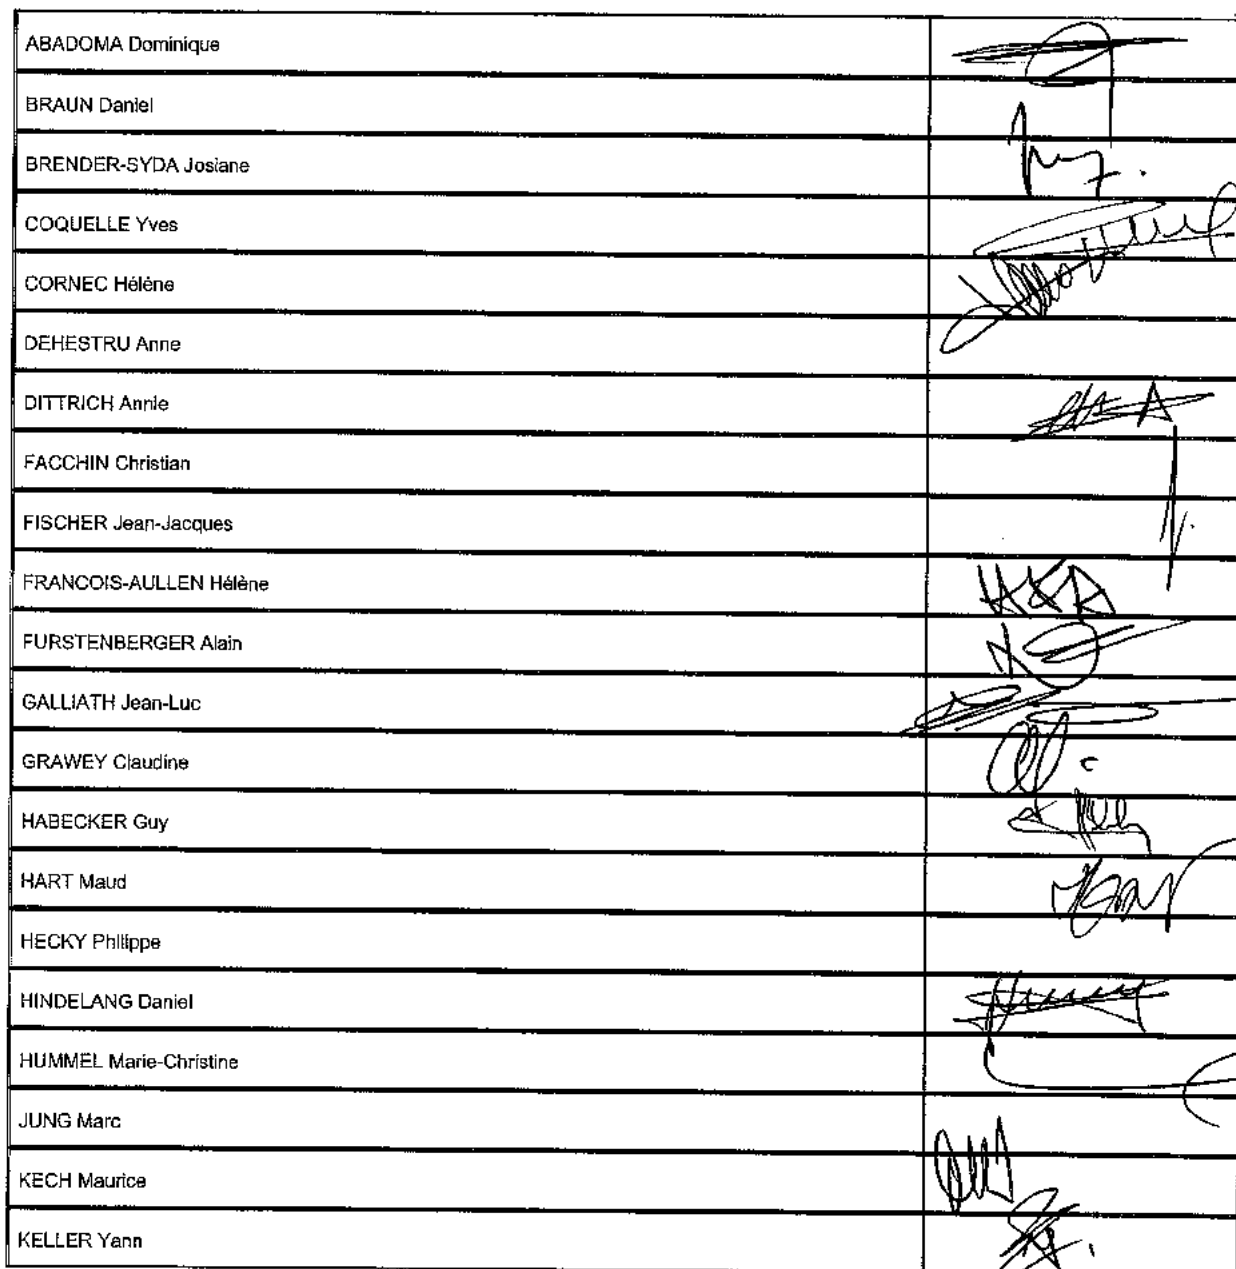 ABADOMA Dominique
BRAUN Daniel
BRENDER-SYDA Josiane
COQUELLE Yves
CORNEC Hélène
DEHESTRU Anne
DITTRICH Annie
FACCHIN Christian
FISCHER Jean-Jacques
FRANCOIS-AULLEN Hélène
FURSTENBERGER Alain
GALLIATH Jean-Luc
GRAWEY Claudine
HABECKER Guy
HART Maud
HECKY Philippe
HINDELANG Daniel
HUMMEL Marie-Christine
JUNG Marc
KECH Maurice
KELLER Yann